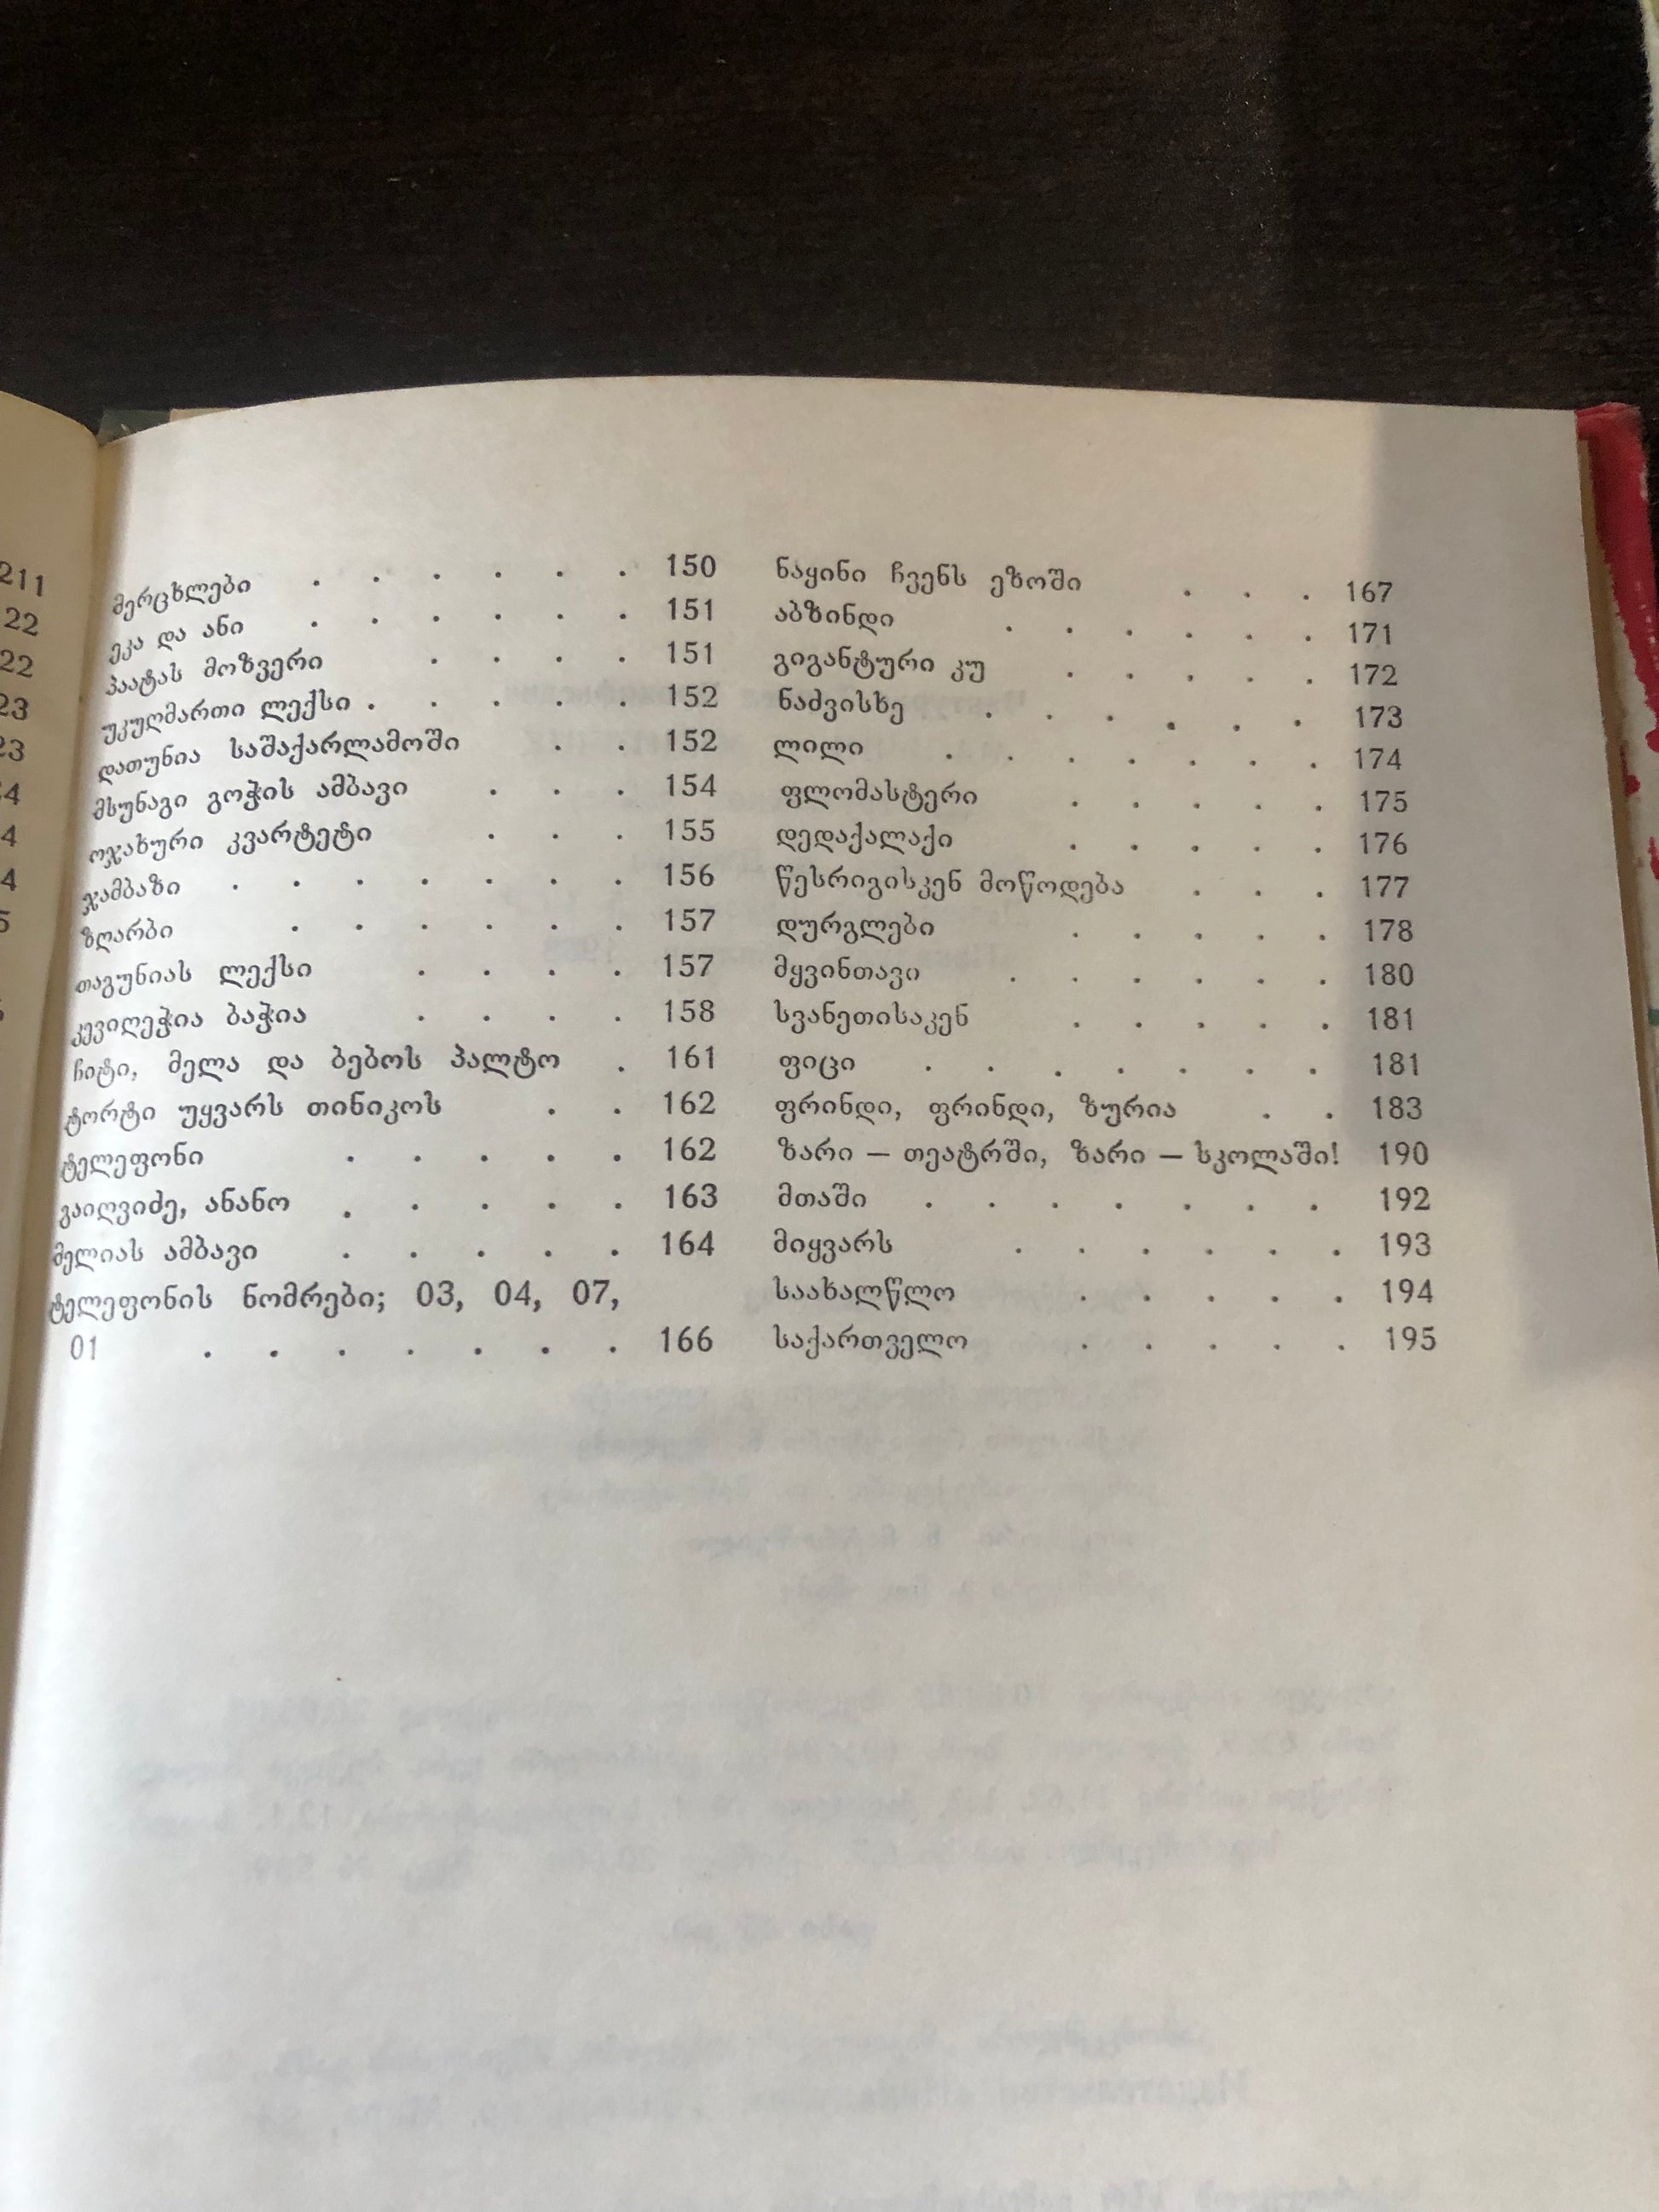 მერცხლები . . . . . . 150
ეკა და ანი . . . . . . 151
პაატას მოზვერი . . . . 151
უკუღმართი ლექსი . . . . . 152
დათუნია საშაქარლამოში . . 152
მსუნაგი გოჭის ამბავი . . . 154
ოჯახური კვარტეტი . . . 155
ჯამბაზი . . . . . . . 156
ზღარბი . . . . . . 157
თაგუნიას ლექსი . . . . 157
კევიღეჭია ბაჭია . . . . 158
ჩიტი, მელა და ბებოს პალტო . 161
ტორტი უყვარს თინიკოს . . 162
ტელეფონი . . . . . 162
გაიღვიძე, ანანო . . . . . 163
მელიას ამბავი . . . . . 164
ტელეფონის ნომრები; 03, 04, 07,
01 . . . . . . . 166
ნაყინი ჩვენს ეზოში . . . 167
აბზინდი . . . . . . 171
გიგანტური კუ . . . . . 172
ნაძვისხე . . . . . . 173
ლილი . . . . . . . 174
ფლომასტერი . . . . . 175
დედაქალაქი . . . . . 176
წესრიგისკენ მოწოდება . . . 177
დურგლები . . . . . 178
მყვინთავი . . . . . . 180
სვანეთისაკენ . . . . . 181
ფიცი . . . . . . . 181
ფრინდი, ფრინდი, ზურია . . 183
ზარი — თეატრში, ზარი — სკოლაში! 190
მთაში . . . . . . . 192
მიყვარს . . . . . . 193
საახალწლო . . . . . 194
საქართველო . . . . . 195